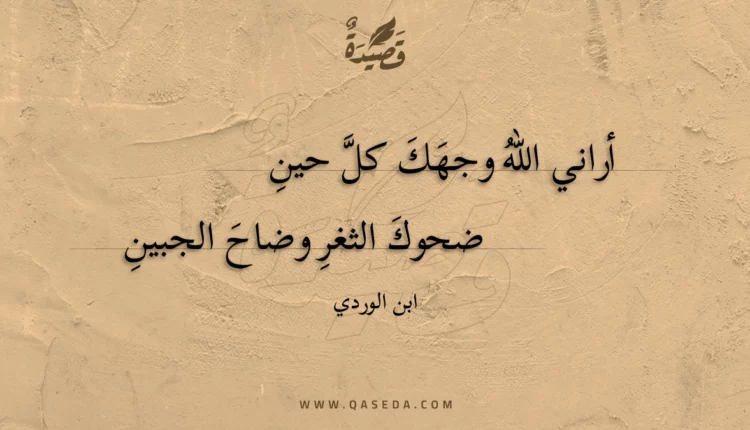 قَصِيدَةٌ
أراني اللهُ وجهَكَ كلَّ حينِ
ضحوكَ الثغرِ وضاحَ الجبينِ
ابن الوردي
WWW.QASEDA.COM